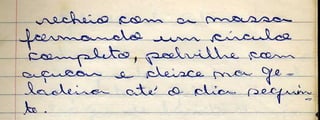 recheio com a massa
formando um círculo
completo, polvilhe com
açucar e deixe na ge-
ladeira até o dia seguin-
te.